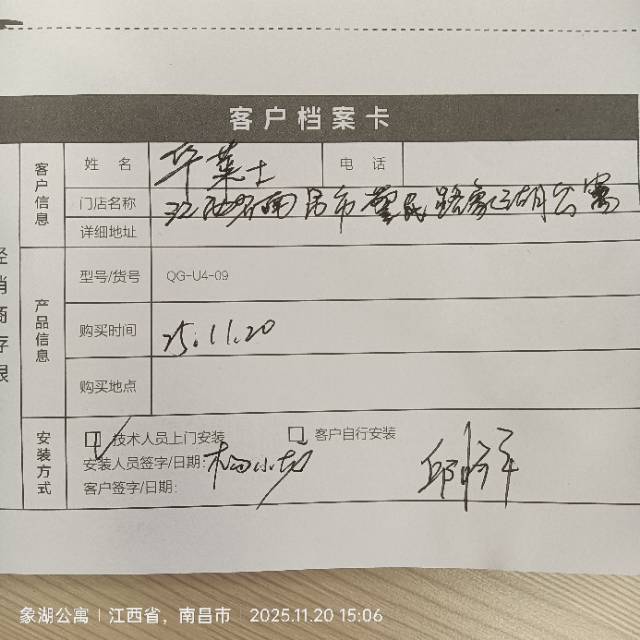 客户档案卡
经销商存根
客户信息
姓 名 华莱士 电 话
门店名称 江西省南昌市 路象湖公寓
详细地址
产品信息
型号/货号 QG-U4-09
购买时间 25.11.20
购买地点
安装方式
技术人员上门安装 客户自行安装
安装人员签字/日期:
客户签字/日期:
象湖公寓 | 江西省,南昌市 2025.11.20 15:06